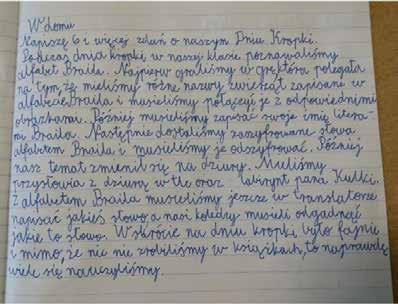 W domu
Napiszę 6 i więcej zdań o naszym Dniu Kropki.
Podczas dnia kropki w naszej klasie poznawaliśmy
alfabet Braila. Najpierw graliśmy w grę która polegała
na tym, że mieliśmy różne nazwy zwierząt zapisane w
alfabecie Braila i musieliśmy połączyć je z odpowiednimi
obrazkami. Później musieliśmy zapisać swoje imię litera-
mi Braila. Następnie dostaliśmy zaszyfrowane słowa
alfabetem Braila i musieliśmy je odszyfrować. Później
nasz temat zmienił się na dziury. Mieliśmy
przysłowia z dziurą w tle oraz labirynt pana Kulki.
Z alfabetem Braila musieliśmy jeszcze w translatorze
napisać jakieś słowo a nasi koledzy musieli odgadnąć
jakie to słowo. W skrócie na dniu kropki było fajnie
i mimo, że nic nie zrobiliśmy w książkach, to naprawdę
wiele się nauczyliśmy.